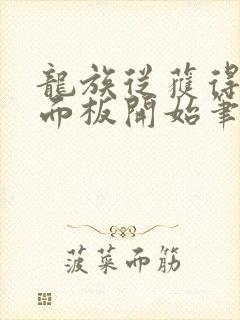 龍族從獲得
而板開始筆
菠菜而筋